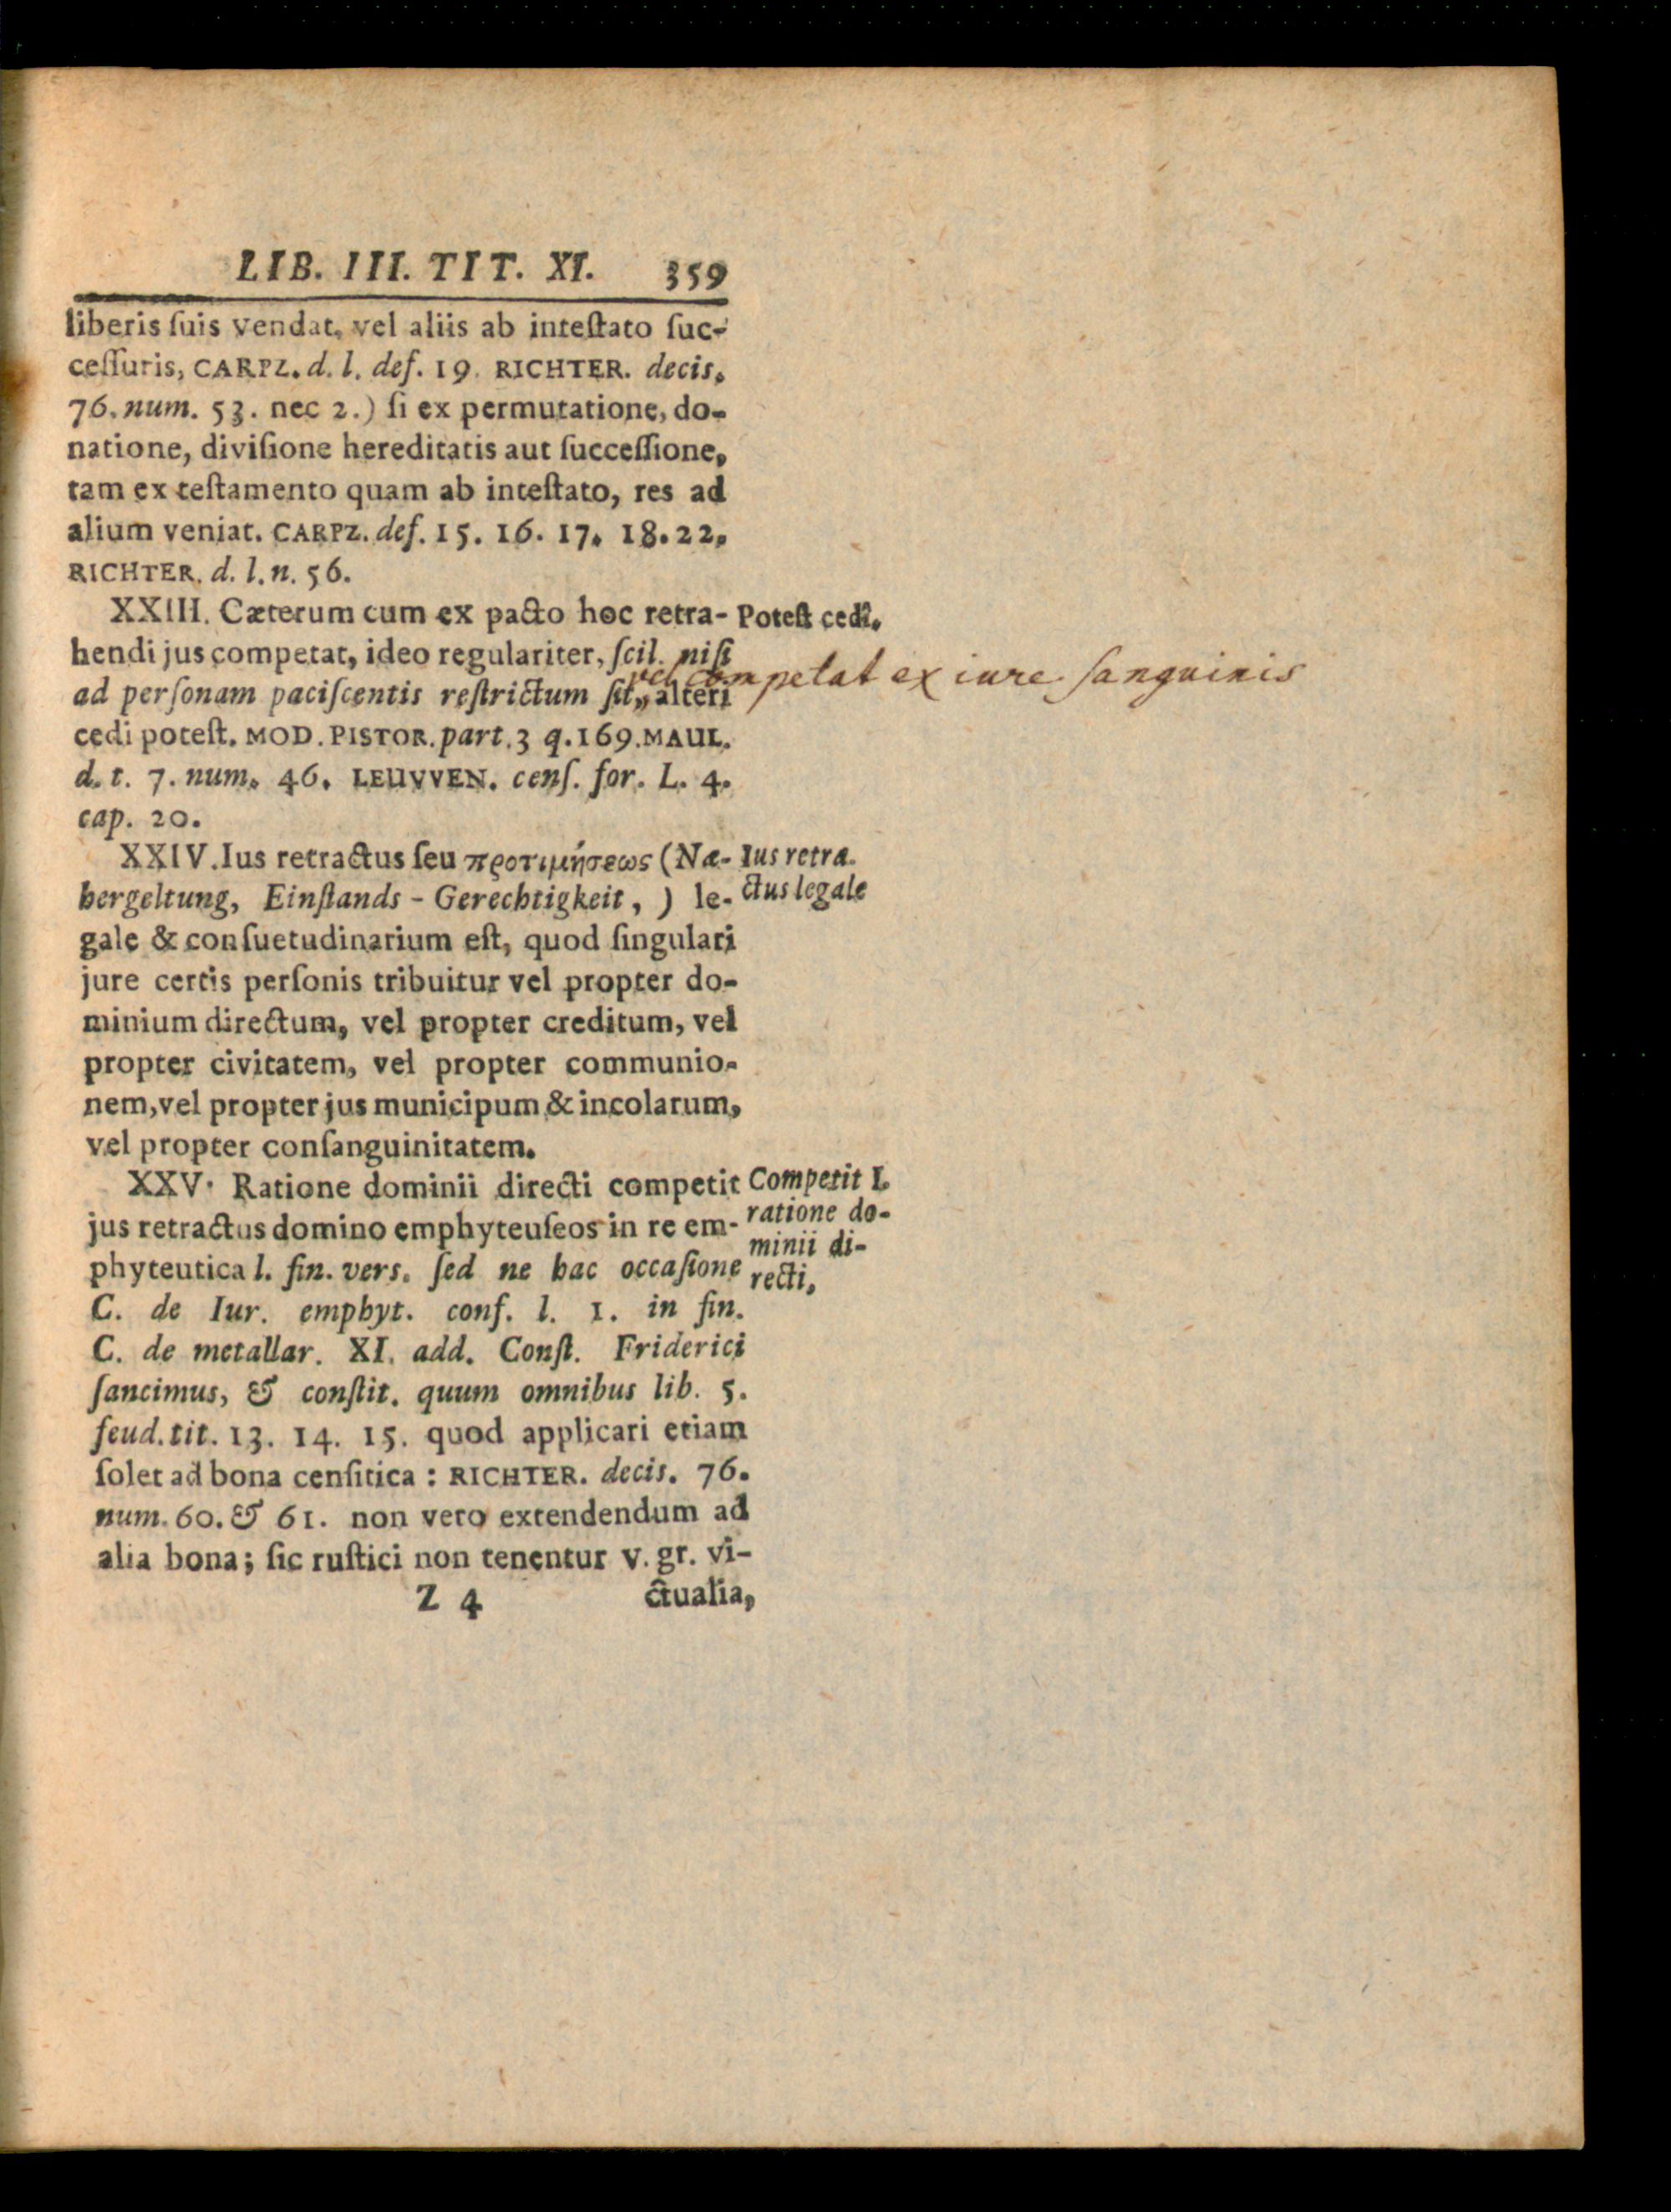 LIB. III. TIT. XI. 359
liberis ſuis vendat, vel aliis ab inteſtato ſuc-
ceſſuris, CARPZ. d. l. def. 19. RICHTER. decis.
76. num. 53. nec 2.) ſi ex permutatione, do-
natione, diviſione hereditatis aut ſucceſſione,
tam ex teſtamento quam ab inteſtato, res ad
alium veniat. CARPZ. def. 15. 16. 17. 18. 22.
RICHTER. d. l. n. 56.
XXIII. Cæterum cum ex pacto hoc retra-
Poteſt cedi.
hendi jus competat, ideo regulariter, ſcil. niſi
vel competat ex iure ſanguinis
ad perſonam paciſcentis reſtrictum ſit,, alteri
cedi poteſt. MOD. PISTOR. part. 3 q. 169. MAUL.
d. t. 7. num. 46. LEUVVEN. cenſ. for. L. 4.
cap. 20.
XXIV. Ius retractus ſeu προτιμήσεως (Næ-
Ius retra-
hergeltung, Einſtands-Gerechtigkeit, ) le-
ctus legale
gale & conſuetudinarium eſt, quod ſingulari
jure certis perſonis tribuitur vel propter do-
minium directum, vel propter creditum, vel
propter civitatem, vel propter communio-
nem, vel propter jus municipum & incolarum,
vel propter conſanguinitatem.
XXV. Ratione dominii directi competit
Competit I.
jus retractus domino emphyteuſeos in re em-
ratione do-
minii di-
phyteutica l. fin. vers. ſed ne hac occaſione
recti,
C. de Iur. emphyt. conf. l. 1. in fin.
C. de metallar. XI. add. Conſt. Friderici
ſancimus, & conſtit. quum omnibus lib. 5.
feud. tit. 13. 14. 15. quod applicari etiam
ſolet ad bona cenſitica : RICHTER. decis. 76.
num. 60. & 61. non vero extendendum ad
alia bona; ſic ruſtici non tenentur v. gr. vi-
Z 4 ctualia,